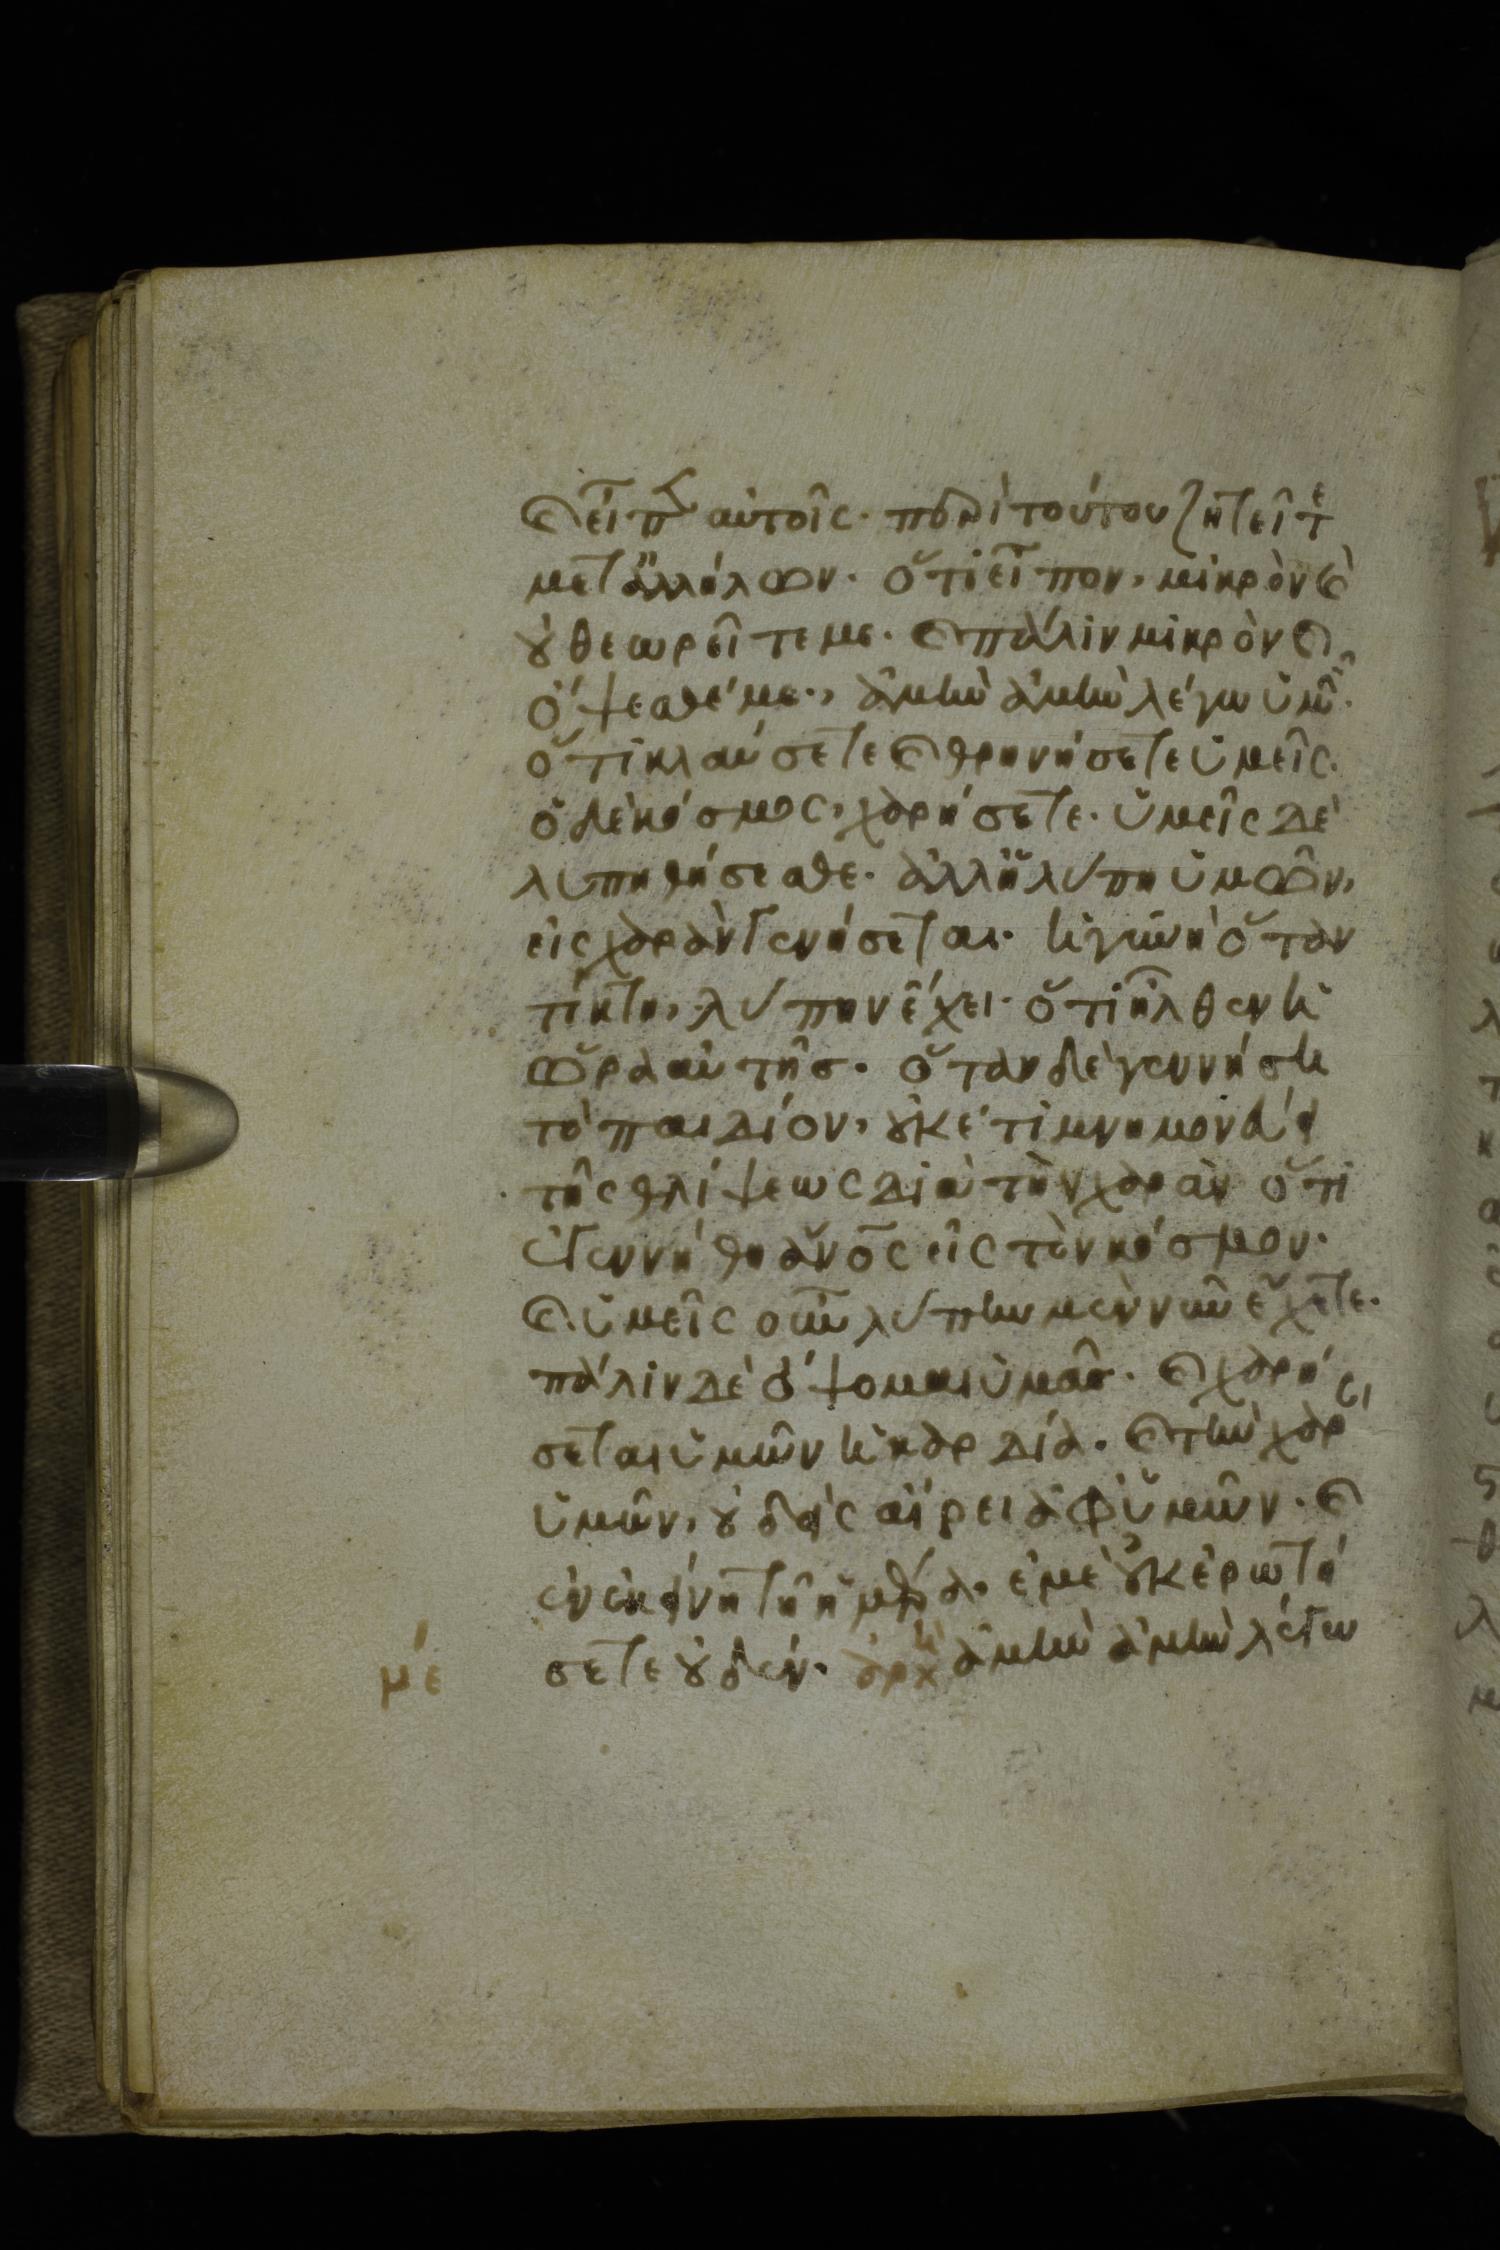 καὶ εἶπεν αὐτοῖς· περὶ τούτου ζητεῖτε
μετ ἀλλήλων· ὅτι εἶπον, μικρὸν καὶ
οὐ θεωρεῖτε με· καὶ πάλιν μικρὸν καὶ
ὄψεσθέ με·, ἀμὴν ἀμὴν λέγω ὑμῖν·
ὅτι κλαύσετε καὶ θρηνήσετε ὑμεῖς·
ὁ δὲ κόσμος, χαρήσετε· ὑμεῖς δὲ
λυπηθήσεσθε· ἀλλ ἡ λύπη ὑμῶν,
εἰς χαρὰν γενήσεται· ἡ γυνὴ ὅταν
τίκτη, λύπην ἔχει· ὅτι ἦλθεν ἡ
ὥρα αὐτῆσ· ὅταν δὲ γεννήση
τὸ παιδίον, οὐκέτι μνημονεύει
τῆς θλίψεως διὰ τὴν χαρὰν ὅτι
ἐγεννήθη ἄνος εἰς τὸν κόσμον·
καὶ ὑμεῖς οὖν λύπην μὲν νῦν ἔχετε·
πάλιν δὲ ὄψομαι ὑμᾶσ· καὶ χαρή
σεται ὑμῶν ἡ καρδία· καὶ τὴν χαρ
ὑμῶν, οὐδεὶς αἴρει ἀφ ὑμῶν· καὶ
ἐν ἐκείνη τῆ ἡμέρα· ἐμὲ οὐκ ἐρωτή
με σετε οὐδέν· ἀρχὴ ἀμὴν ἀμὴν λέγω